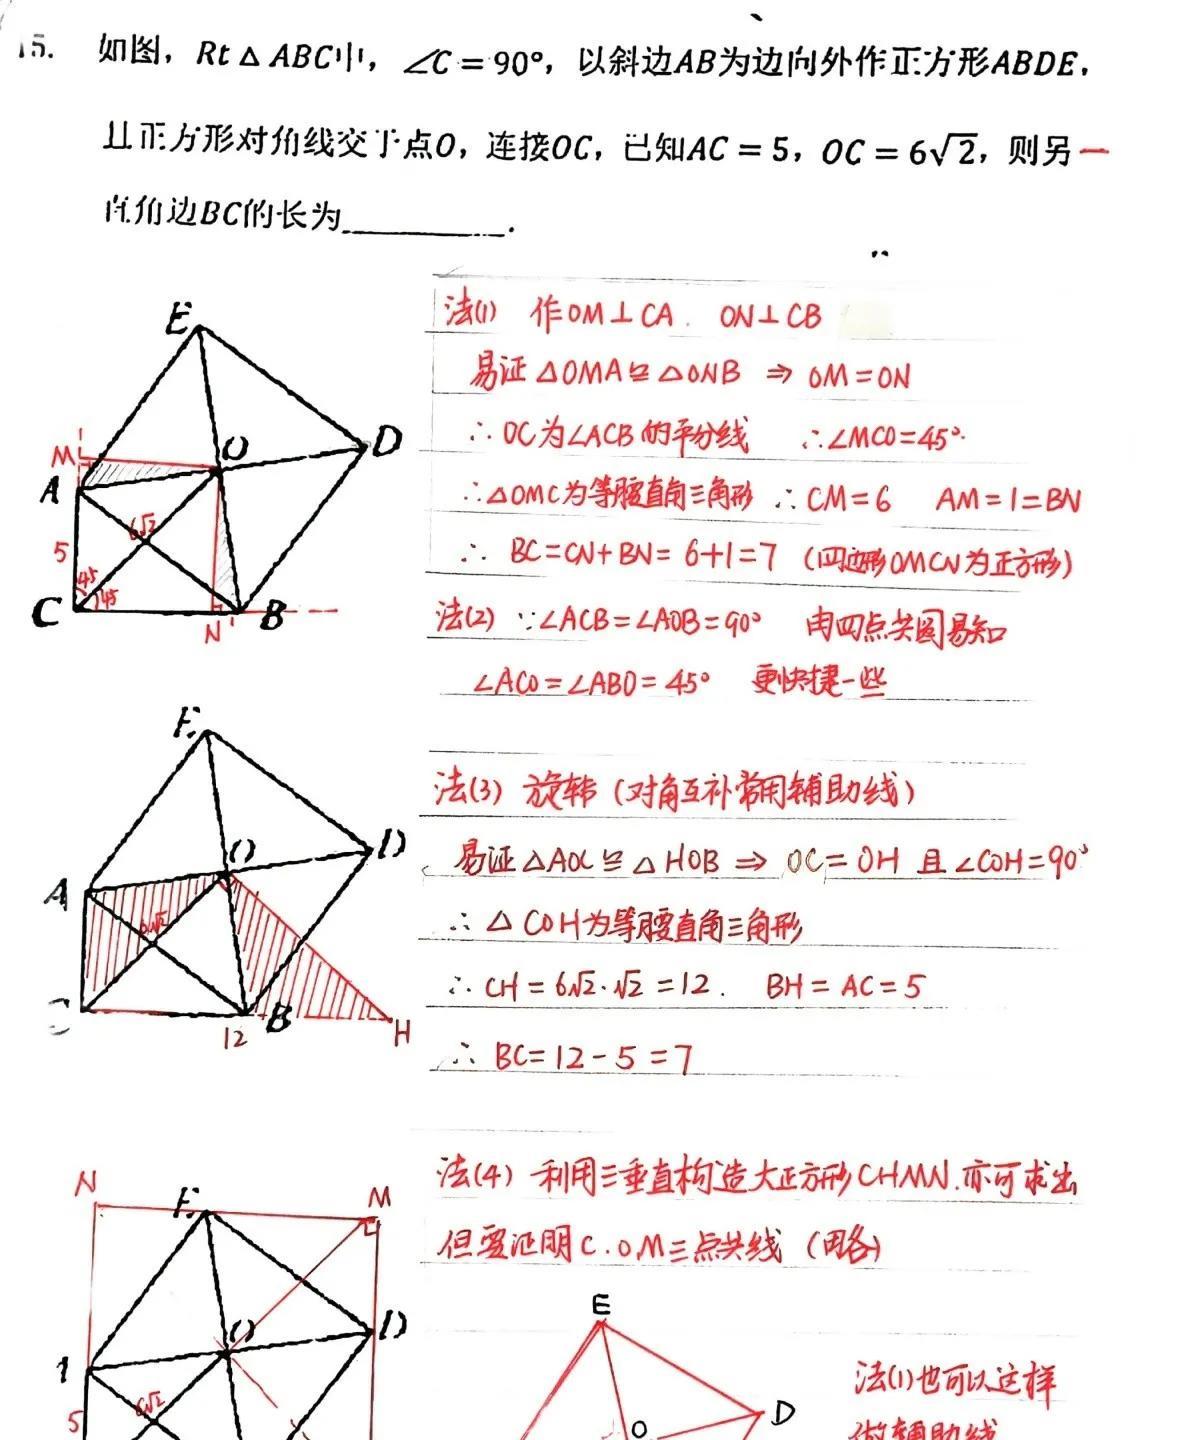 15. 如图，Rt△ABC中，∠C=90°，以斜边AB为边向外作正方形ABDE，
且正方形对角线交于点O，连接OC，已知AC=5，OC=6√2，则另一
直角边BC的长为________.
法(1) 作OM⊥CA. ON⊥CB
易证△OMA≌△ONB ⇒ OM=ON
∴OC为∠ACB的平分线 ∴∠MCO=45°.
∴△OMC为等腰直角三角形 ∴CM=6 AM=1=BN
∴ BC=CN+BN=6+1=7 (四边形OMCN为正方形)
E
M
O
D
A
6√2
5
45
45
C
N
B
法(2) ∵∠ACB=∠AOB=90° 由四点共圆易知
∠ACO=∠ABO=45° 更快捷一些
法(3) 旋转 (对角互补常用辅助线)
易证△AOC≌△HOB ⇒ OC=OH 且∠COH=90°
∴ △COH为等腰直角三角形
∴ CH=6√2·√2=12. BH=AC=5
∴ BC=12-5=7
E
O
D
A
6√2
C
12
B
H
法(4) 利用三垂直构造大正方形CHMN.亦可求出
但要证明C.O.M三点共线 (略)
N
E
M
O
D
6√2
5
E
D
O
法(1)也可以这样
做辅助线